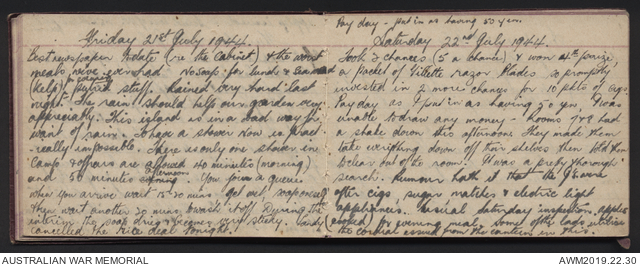 Friday 21st July 1944.
Best newspaper to date (re the Cabinet) & the worst
meals ever had. No soup for lunch & tea
help stuff. Rained very hard last
night. The rain should help our garden very
appreciably. This island is in a bad way for
want of rain. To have a shower now is pract-
-really impossible. There is only one shower in
Camp & officers are allowed 40 minutes (morning)
and 50 minutes afternoon. You join a queue
when you arrive, wait 15-20 mins, get wet, soap yourself
then wait another 20 mins to wash it off. During the
interim the soap dries & becomes very sticky.
cancelled the rice deal tonight.
Pay day - put in as having 50 yen.
Saturday 22nd July 1944.
Took 2 chances (5 a chance) & won 4th prize,
a packet of Gillette razor blades so promptly
invested in 2 more chances for 10 pkts of cigs.
Pay day as I put in as having 50 yen, I was
unable to draw any money - Rooms 7&8 had
a shake down this afternoon. They made them
take everything down off their shelves then told them
to clear out of the room. It was a pretty thorough
search. Rumour hath it that the I.J. were
after cigs, sugar matches & electric light
appliances. Usual Saturday inspection, apples
(cooked) for evening meal, some of the lads utilise
the cordial issued from the canteen in this.
AUSTRALIAN WAR MEMORIAL
AWM2019.22.30